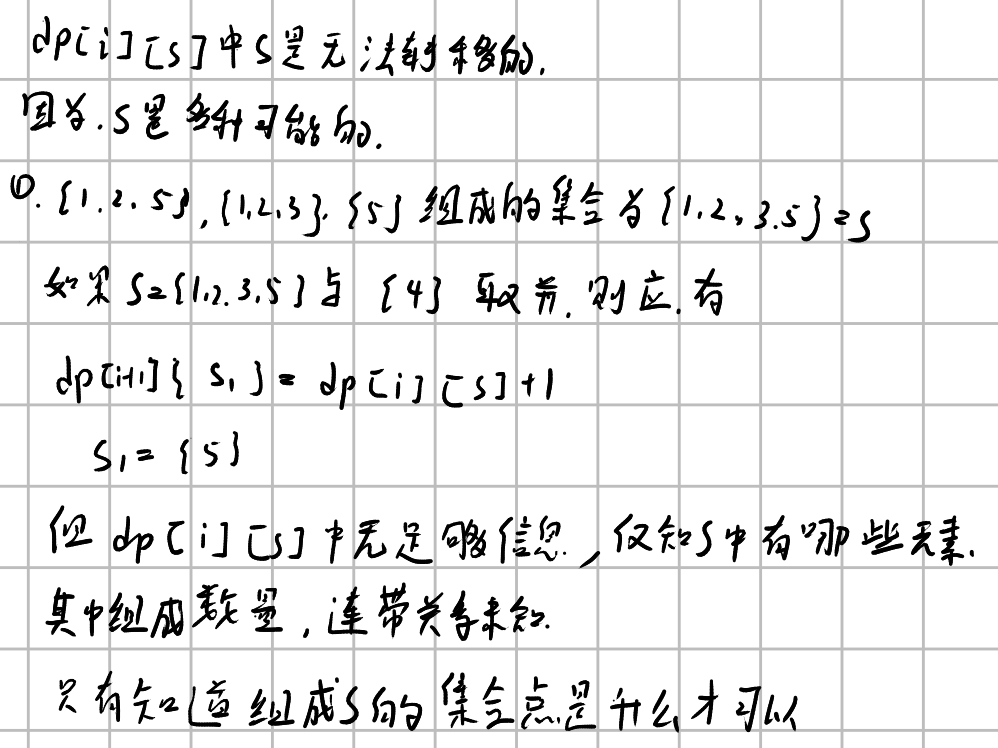 dp[i][s]中s是无法转移的.
因为.s是多种可能的.
①.{1.2.5},{1,2,3}.{5}组成的集合为{1.2,3.5}=s
如果S={1,2.3,5}与{4}取并.则应.有
dp[i+1]{s₁}=dp[i][s]+1
S₁={5}
但dp[i][s]中无足够信息,仅知S中有哪些元素.
其中组成数量,连带关系未知.
只有知道组成S的集合点是什么才可以